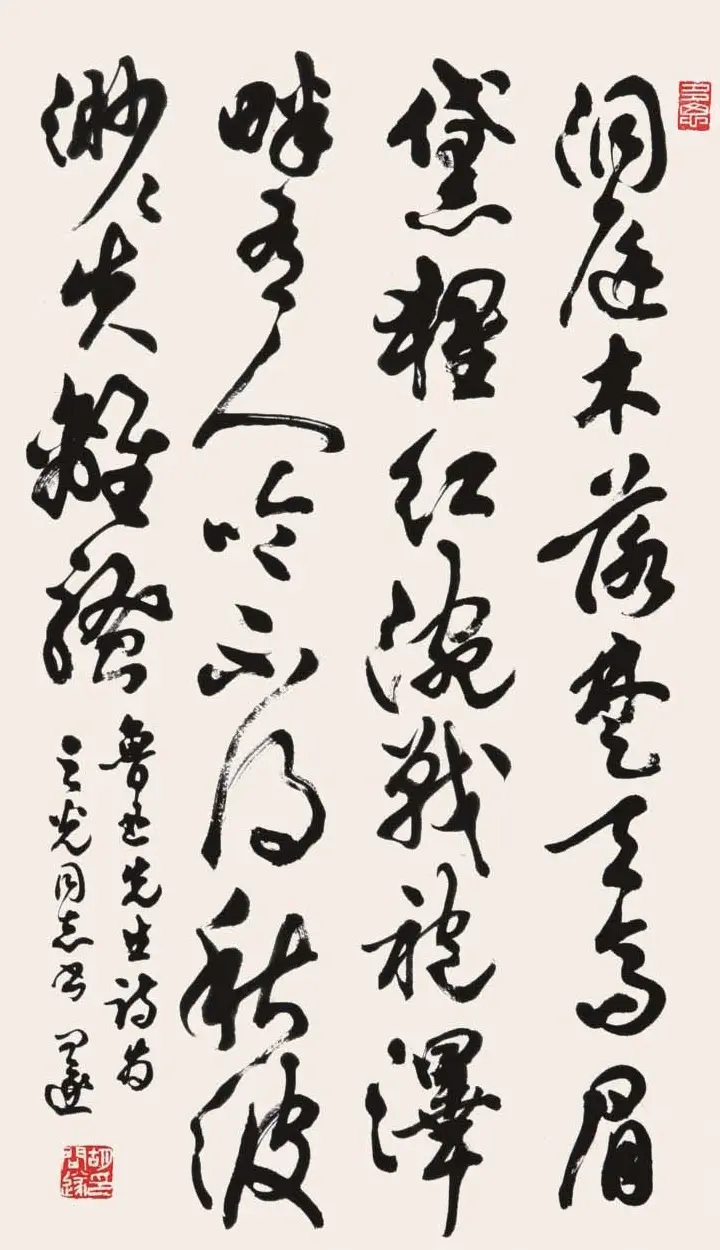 洞庭木落楚天高眉
黛猩紅涴戰袍澤
畔有人吟不得秋波
渺々失離騷
魯迅先生詩為
之光同志書 問遂
胡印問遂